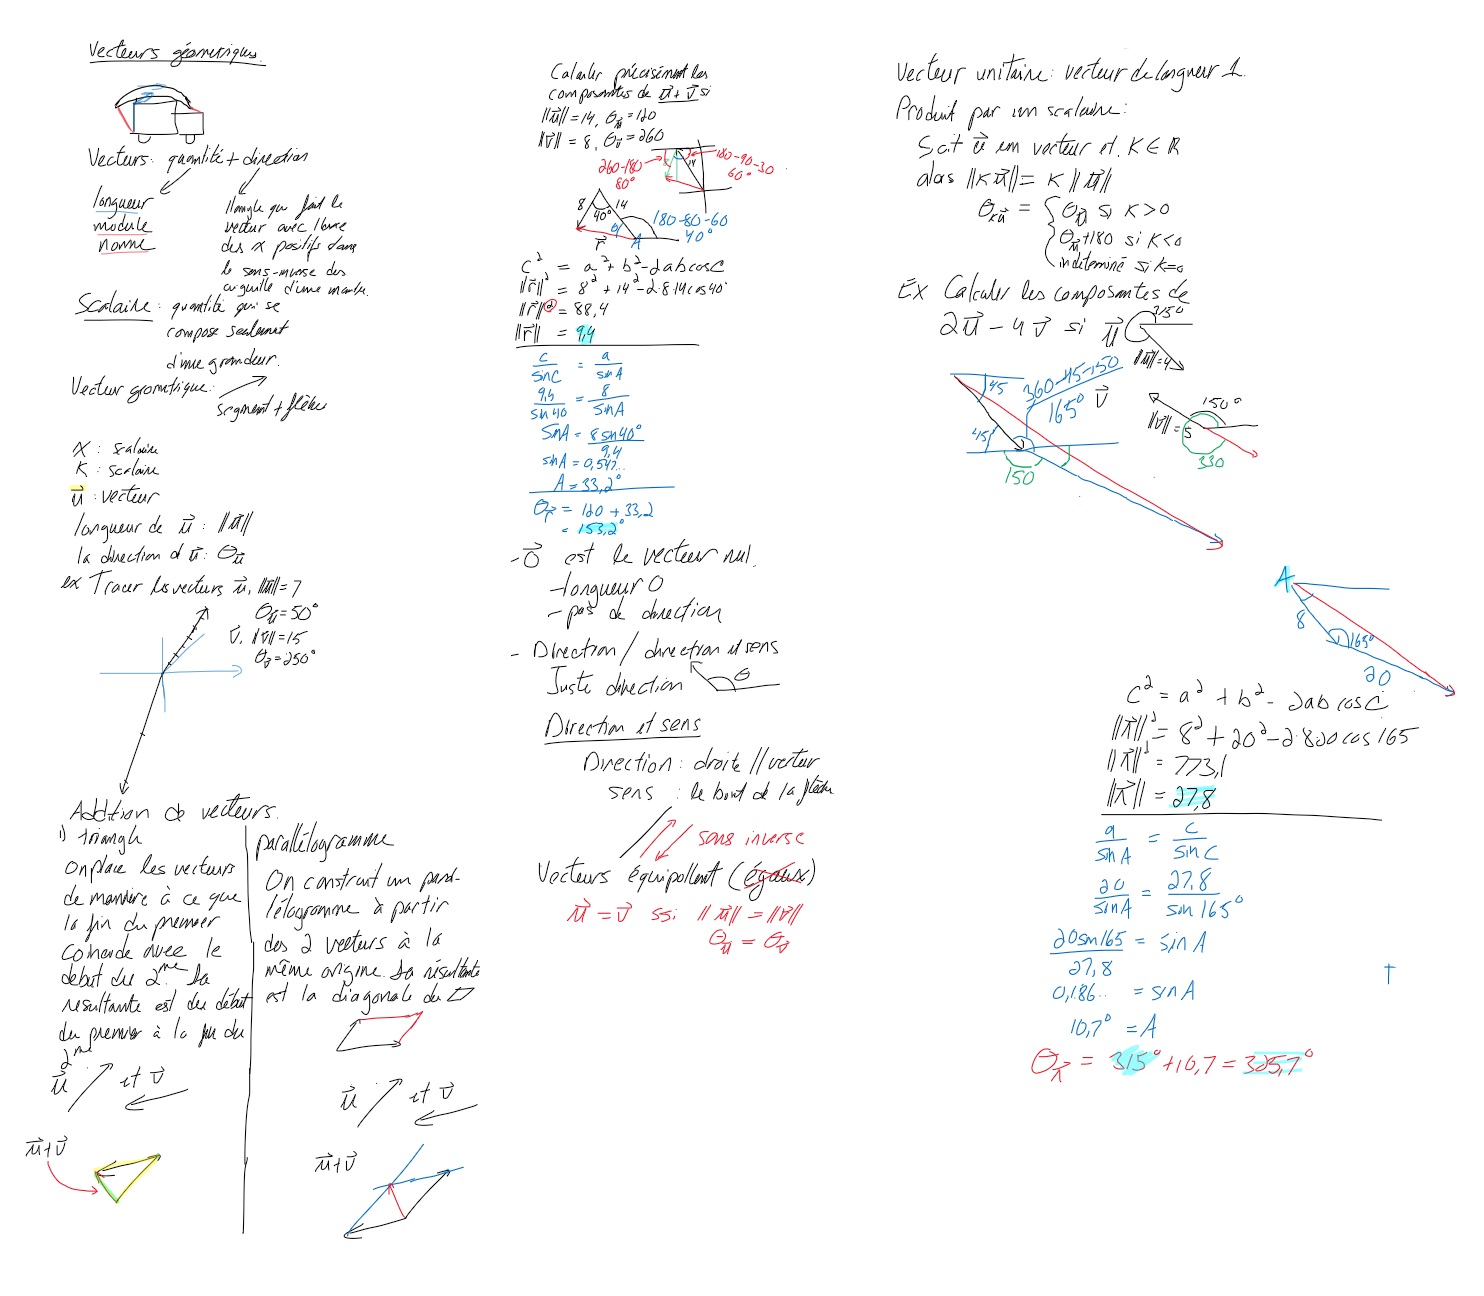 Vecteurs géometriques.
Vecteurs: quantité + direction
longueur
module
norme
l'angle que fait le
vecteur avec l'axe
des x positifs dans
le sens-inverse des
aiguille d'une montre.
Scalaire: quantité qui se
compose seulement
d'une grandeur.
Vecteur geometrique:
segment + flèche
x : scalaire
K : scalaire
u⃗ : vecteur
longueur de u⃗ : ||u⃗||
la direction d u⃗ : θu⃗
ex Tracer les vecteurs u⃗, ||u⃗||=7
θu⃗=50°
v⃗, ||v⃗||=15
θv⃗=250°
Addition de vecteurs.
1) triangle
On place les vecteurs
de manière à ce que
la fin du premier
coincide avec le
début du 2me. La
résultante est du début
du premier à la fin du
2me
u⃗ et v⃗
u⃗+v⃗
parallélogramme
On construit un paral-
lélogramme à partir
des 2 vecteurs à la
même origine. La résultante
est la diagonale du ▱
u⃗ et v⃗
u⃗+v⃗
Calculer précisément les
composantes de u⃗+v⃗ si
||u⃗||=14, θu⃗=120
||v⃗||=8, θv⃗=260
260-180
80°
14
180-90-30
60°
8
40°
14
θ
A
r⃗
180-80-60
40°
c² = a²+b²-2abcosC
||r⃗||² = 8²+14²-2·8·14cos40°
||r⃗||² = 88,4
||r⃗|| = 9,4
c/sinC = a/sinA
9,4/sin40 = 8/sinA
sinA = 8sin40°/9,4
sinA = 0,547...
A = 33,2°
θr⃗ = 120 + 33,2
= 153,2°
- 0⃗ est le vecteur nul.
- longueur 0
- pas de direction
- Direction / direction et sens
Juste direction
θ
Direction et sens
Direction : droite // vecteur
sens : le bout de la flèche
sens inverse
Vecteurs équipollent (égaux)
u⃗ = v⃗ ssi ||u⃗|| = ||v⃗||
θu⃗ = θv⃗
Vecteur unitaire: vecteur de longueur 1.
Produit par un scalaire:
Soit u⃗ un vecteur et K∈ℝ
alors ||Ku⃗|| = K ||u⃗||
θKu⃗ = { θu⃗ si K>0
θu⃗+180 si K<0
indeterminé si K=0
Ex Calculer les composantes de
2u⃗ - 4v⃗ si u⃗
315°
||u⃗||=4
45
360-45-150
165°
v⃗
45°
150
150°
||v⃗||=5
330
A
8
165°
20
c² = a² + b² - 2abcosC
||r⃗||² = 8² + 20² - 2·8·20cos165
||r⃗||² = 773,1
||r⃗|| = 27,8
a/sinA = c/sinC
20/sinA = 27,8/sin165°
20sin165/27,8 = sinA
0,186.. = sinA
10,7° = A
θr⃗ = 315° + 10,7 = 325,7°